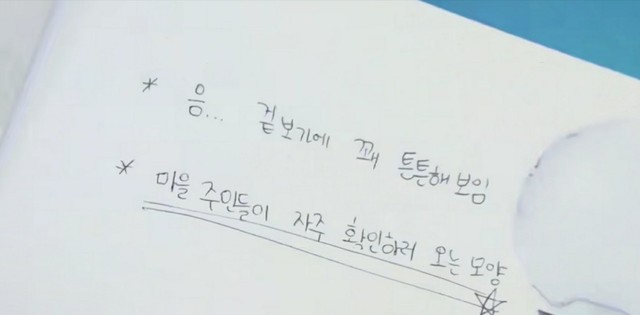 * 음... 겉보기에 꽤 튼튼해보임
* 마을 주민들이 자주 확인하러 오는 모양